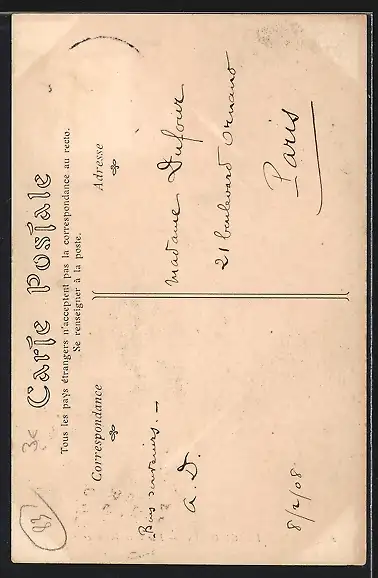 Carte Postale
Tous les pays étrangers n'acceptent pas la correspondance au recto.
Se renseigner à la poste.
Correspondance
Adresse
Bons souvenirs. —
A. D.
8/2/08
Madame Dufour
21 boulevard Ornano
Paris
83
3c